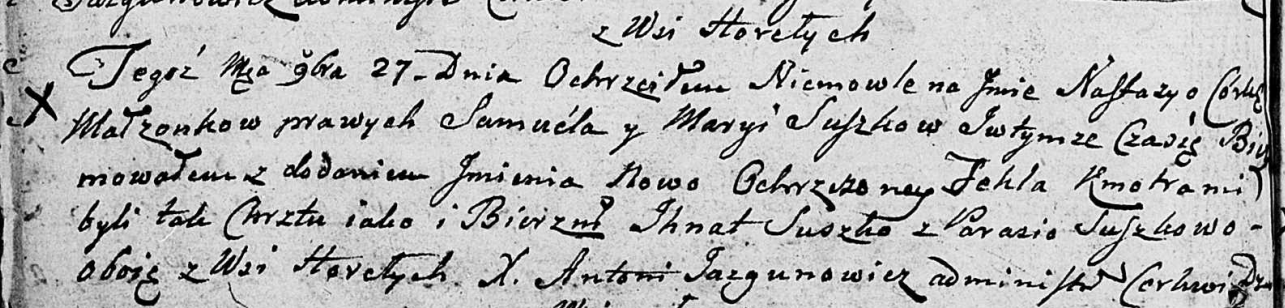 z Wsi Horełych
Tegoż Mca 9bra 27. Dnia Ochrzciłem Niemowle na Jmie Nastazyo Corkę
Małzonkow prawych Samuéla y Maryi Suszkow Jwtymze Czasię Birz
mowałem z dodaniem Jmienia Nowo Ochrzczoney Tekla Kmotrami
byli tak Chrztu iako i Bierzm Ihnat Suszko z Parasio Suszkowo -
oboię z Wsi Horełych X. Antoni Jazgunowicz administr Cerkwi